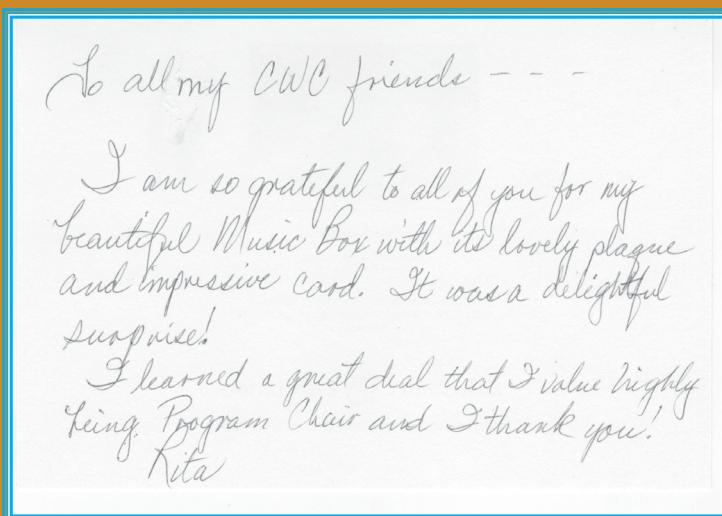 To all my CWC friends - - -
I am so grateful to all of you for my
beautiful Music Box with its lovely plaque
and impressive card. It was a delightful
surprise!
I learned a great deal that I value highly
being Program Chair and I thank you!
Rita